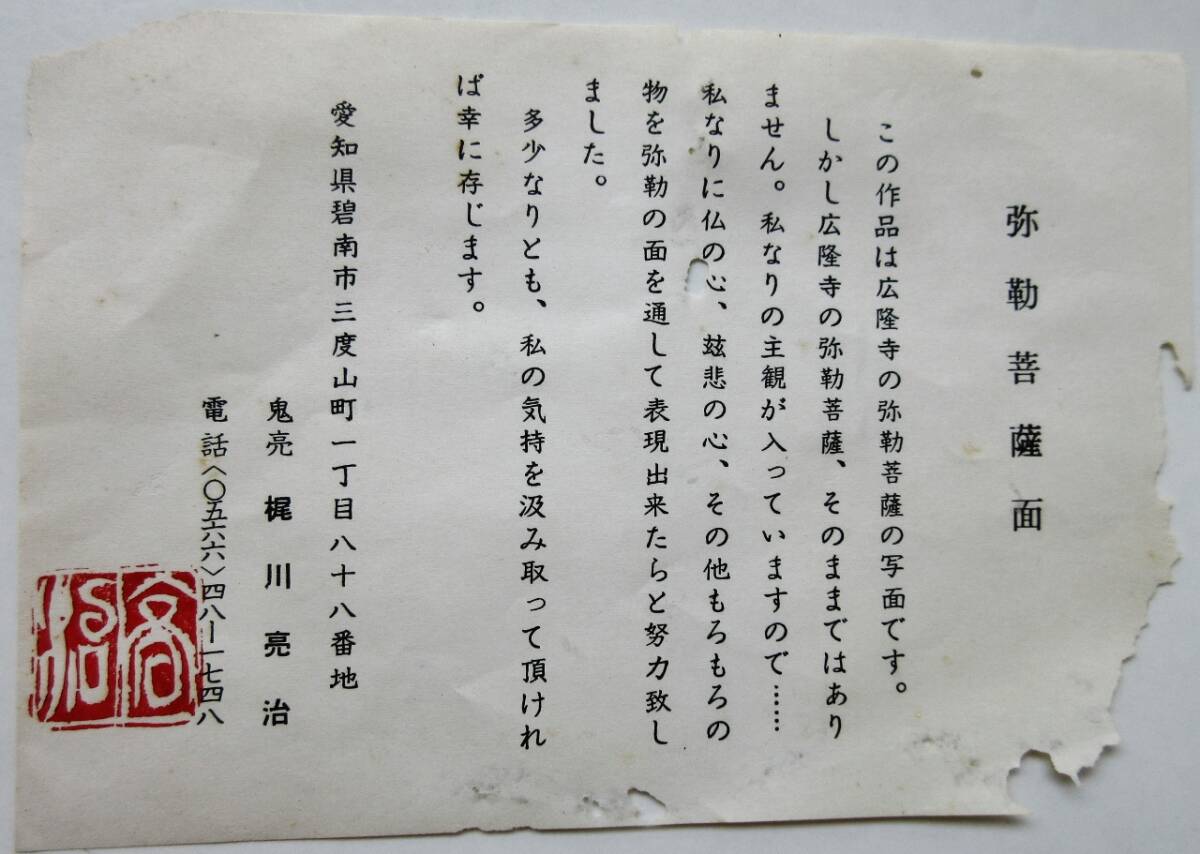 弥勒菩薩面
この作品は広隆寺の弥勒菩薩の写面です。
しかし広隆寺の弥勒菩薩、そのままではあり
ません。私なりの主観が入っていますので……
私なりに仏の心、玆悲の心、その他もろもろの
物を弥勒の面を通して表現出来たらと努力致し
ました。
多少なりとも、私の気持を汲み取って頂けれ
ば幸に存じます。
愛知県碧南市三度山町一丁目八十八番地
鬼亮 梶川亮治
電話〈〇五六六〉四八―一七四八
亮治